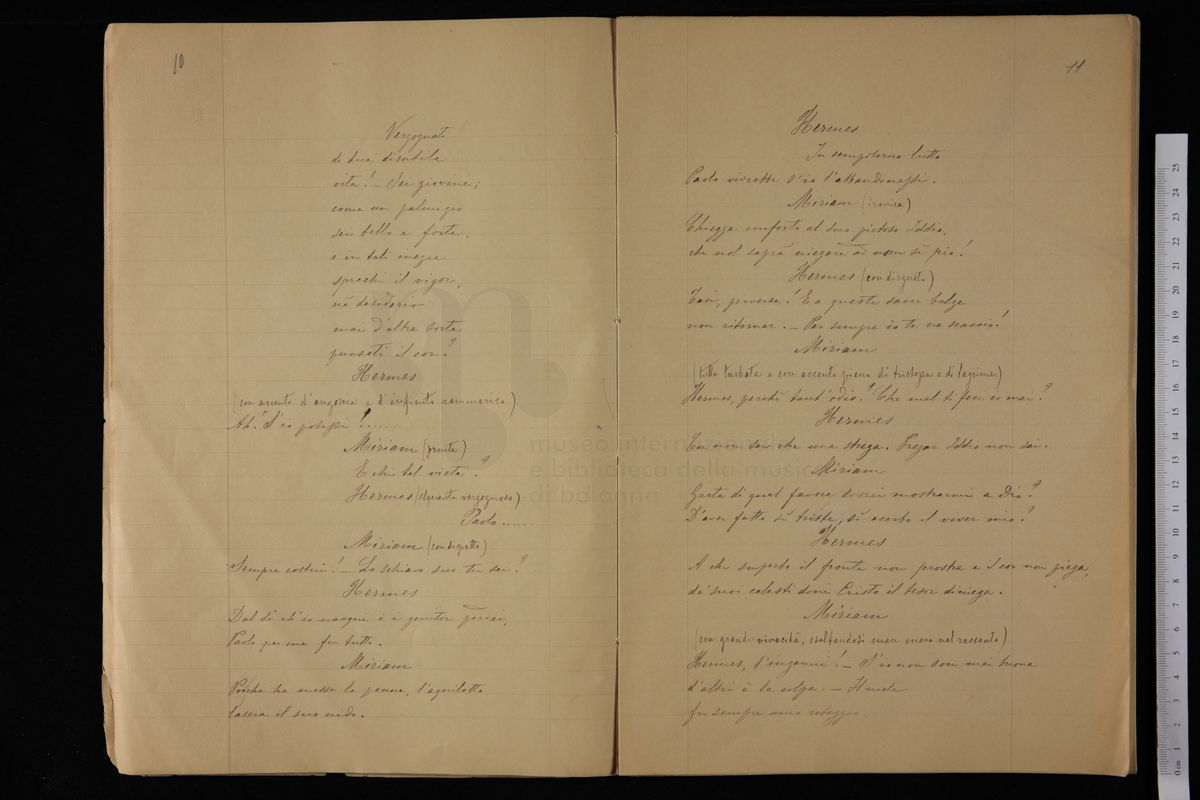 10
Vergognati
di tua
vita! – Sei giovine;
come un palmizio
sei bello e forte;
e in tali inezie
sprechi il vigor,
nè desiderio
mai d'altra sorte
punseti il cor?
Hermes
(con accento d'angoscia e d'infinito rammarico)
Ah! S'io potessi!.....
Miriam (pronta)
E chi tel vieta?
Hermes (alquanto vergognoso)
Paolo.....
Miriam (con dispetto)
Sempre costui! – Lo schiavo suo tu sei?
Hermes
Dal dì ch'io nacqui e i genitor
Paolo per me fu tutto.
Miriam
Poichè ha messo le penne, l'aquilotto
lascia il suo nido.
11
Hermes
In sempiterno lutto
Paolo vivrebbe s'io l'abbandonassi.
Miriam (ironica)
Chiegga conforto al suo pietoso Iddio,
che nol saprà niegare ad uom sì pio!
Hermes (con disgusto)
Taci, perversa! E a queste sacre balze
non ritornar. – Per sempre io te ne scaccio!
Miriam
(tutta turbata e con accento pieno di tristezza e di lagrime)
Hermes, perchè tant'odio? Che mal ti feci io mai?
Hermes
Tu non sei che una strega. Pregar Iddio non sai.
Miriam
Grata di qual favore dovrei mostrarmi a Dio?
D'aver fatto sì triste, sì acerbo il viver mio?
Hermes
A chi superbo il fronte non prostra e il cor non piega,
de' suoi celesti doni Cristo il tesor diniega.
Miriam
(con grande vivacità, esaltandosi man mano nel racconto)
Hermes, t'inganni! – S'io non son mai buona
d'altri è la colpa. –
fu sempre mio retaggio.
museo internazionale
e biblioteca della musica
di bologna
0 cm 1 2 3 4 5 6 7 8 9 10 11 12 13 14 15 16 17 18 19 20 21 22 23 24 25